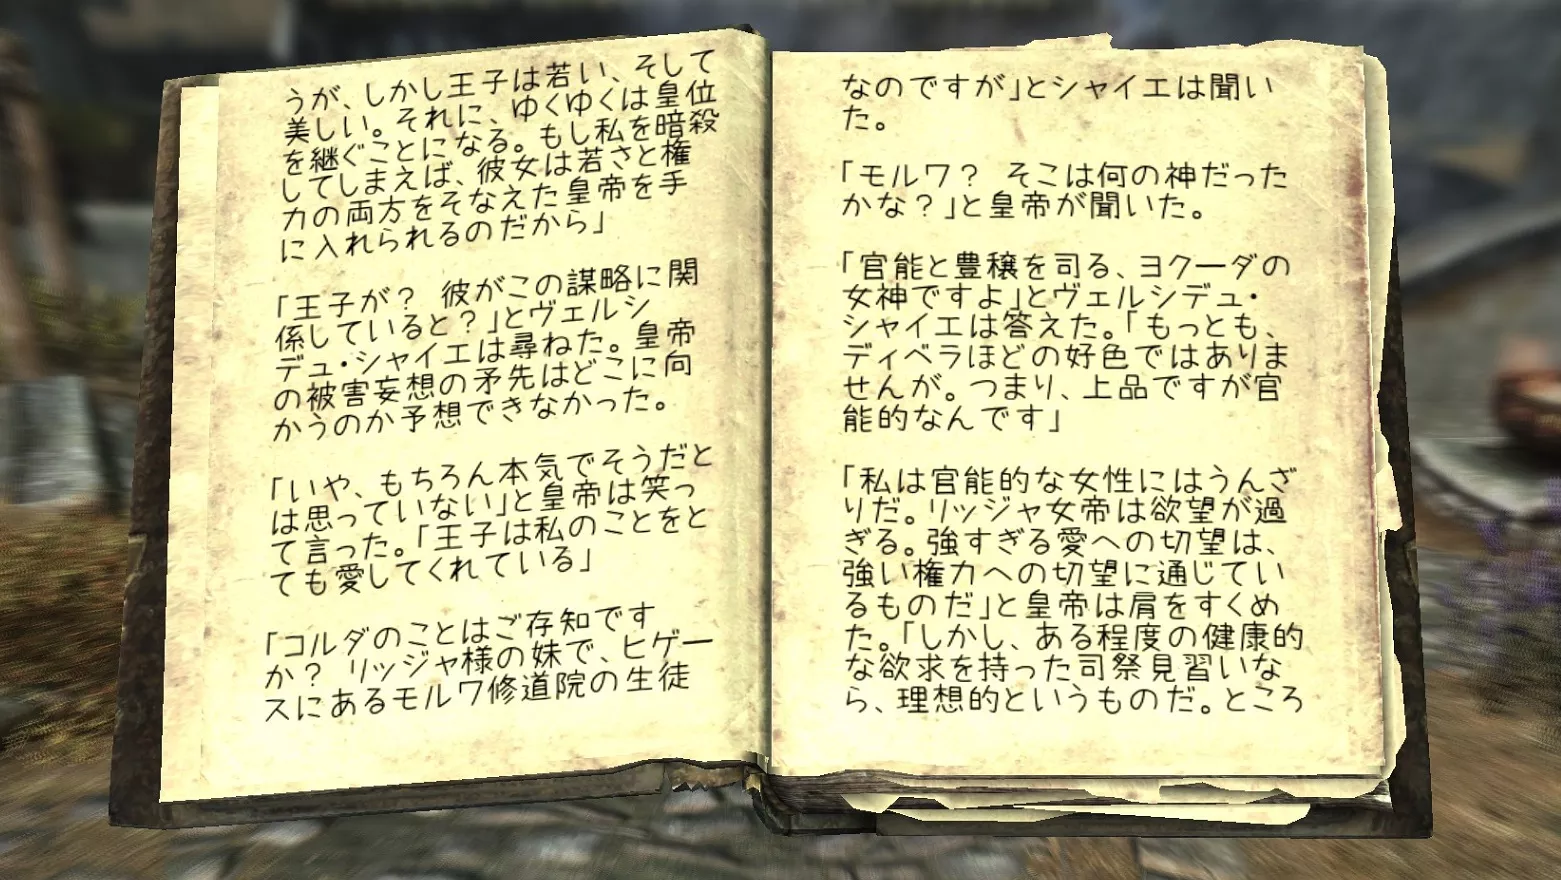 うが、しかし王子は若い、そして
美しい。それに、ゆくゆくは皇位
を継ぐことになる。もし私を暗殺
してしまえば、彼女は若さと権
力の両方をそなえた皇帝を手
に入れられるのだから」
「王子が？ 彼がこの謀略に関
係していると？」とヴェルシ
デュ・シャイエは尋ねた。皇帝
の被害妄想の矛先はどこに向
かうのか予想できなかった。
「いや、もちろん本気でそうだと
は思っていない」と皇帝は笑っ
て言った。「王子は私のことをと
ても愛してくれている」
「コルダのことはご存知です
か？ リッジャ様の妹で、ヒゲー
スにあるモルワ修道院の生徒
なのですが」とシャイエは聞い
た。
「モルワ？ そこは何の神だった
かな？」と皇帝が聞いた。
「官能と豊穣を司る、ヨクーダの
女神ですよ」とヴェルシデュ・
シャイエは答えた。「もっとも、
ディベラほどの好色ではありま
せんが。つまり、上品ですが官
能的なんです」
「私は官能的な女性にはうんざ
りだ。リッジャ女帝は欲望が過
ぎる。強すぎる愛への切望は、
強い権力への切望に通じてい
るものだ」と皇帝は肩をすくめ
た。「しかし、ある程度の健康的
な欲求を持った司祭見習いな
ら、理想的というものだ。ところ